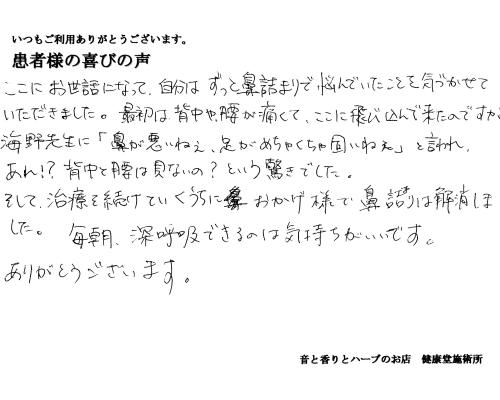 いつもご利用ありがとうございます。
患者様の喜びの声
ここにお世話になって、自分はずっと鼻詰まりで悩んでいたことを気づかせて
いただきました。最初は背中や腰が痛くて、ここに飛び込んで来たのですが
海野先生に「鼻が悪いねぇ、足がめちゃくちゃ固いねぇ」と言われ、
あれ!?背中と腰は見ないの?という驚きでした。
そして、治療を続けていくうちに おかげ様で鼻詰りは解消しま
した。毎朝、深呼吸できるのは気持ちがいいです。
ありがとうございます。
音と香りとハーブのお店 健康堂施術所